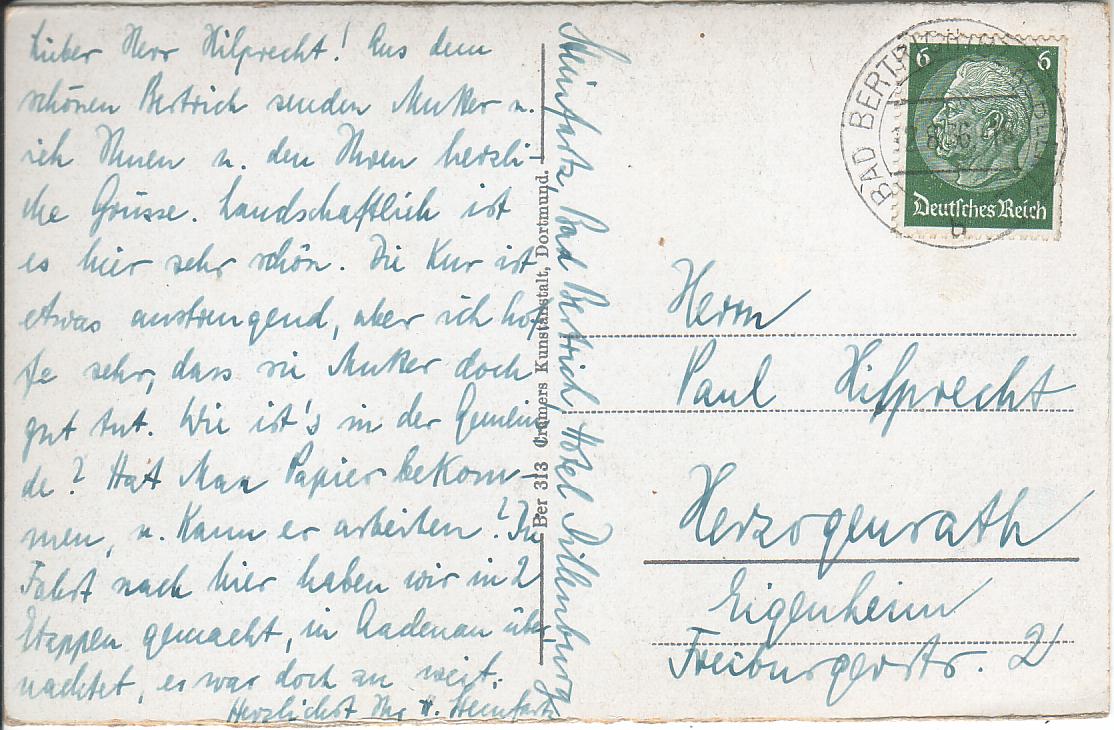 Lieber Herr Hilprecht! Aus dem
schönen Bertrich senden Mutter u.
ich Ihnen u. den Ihren herzli-
che Grüsse. Landschaftlich ist
es hier sehr schön. Die Kur ist
etwas anstrengend, aber ich hof
fe sehr, dass sie Mutter doch
gut tut. Wie ist's in der Gemein
de? Hat Max Papier bekom-
men, u. kann er arbeiten? Die
Fahrt nach hier haben wir in 2
Etappen gemacht, in Aadenau über
nachtet, es war doch zu weit.
Herzlichst Ihr H. Steinfartz
Steinfartz, Bad Bertrich Hotel Dillenburg
Ber 313 Cramers Kunstanstalt, Dortmund.
BAD BERTRICH
8.36
b
6 6
Deutsches Reich
Herrn
Paul Hilprecht
Herzogenrath
Eigenheim
Freiburgerstr. 2